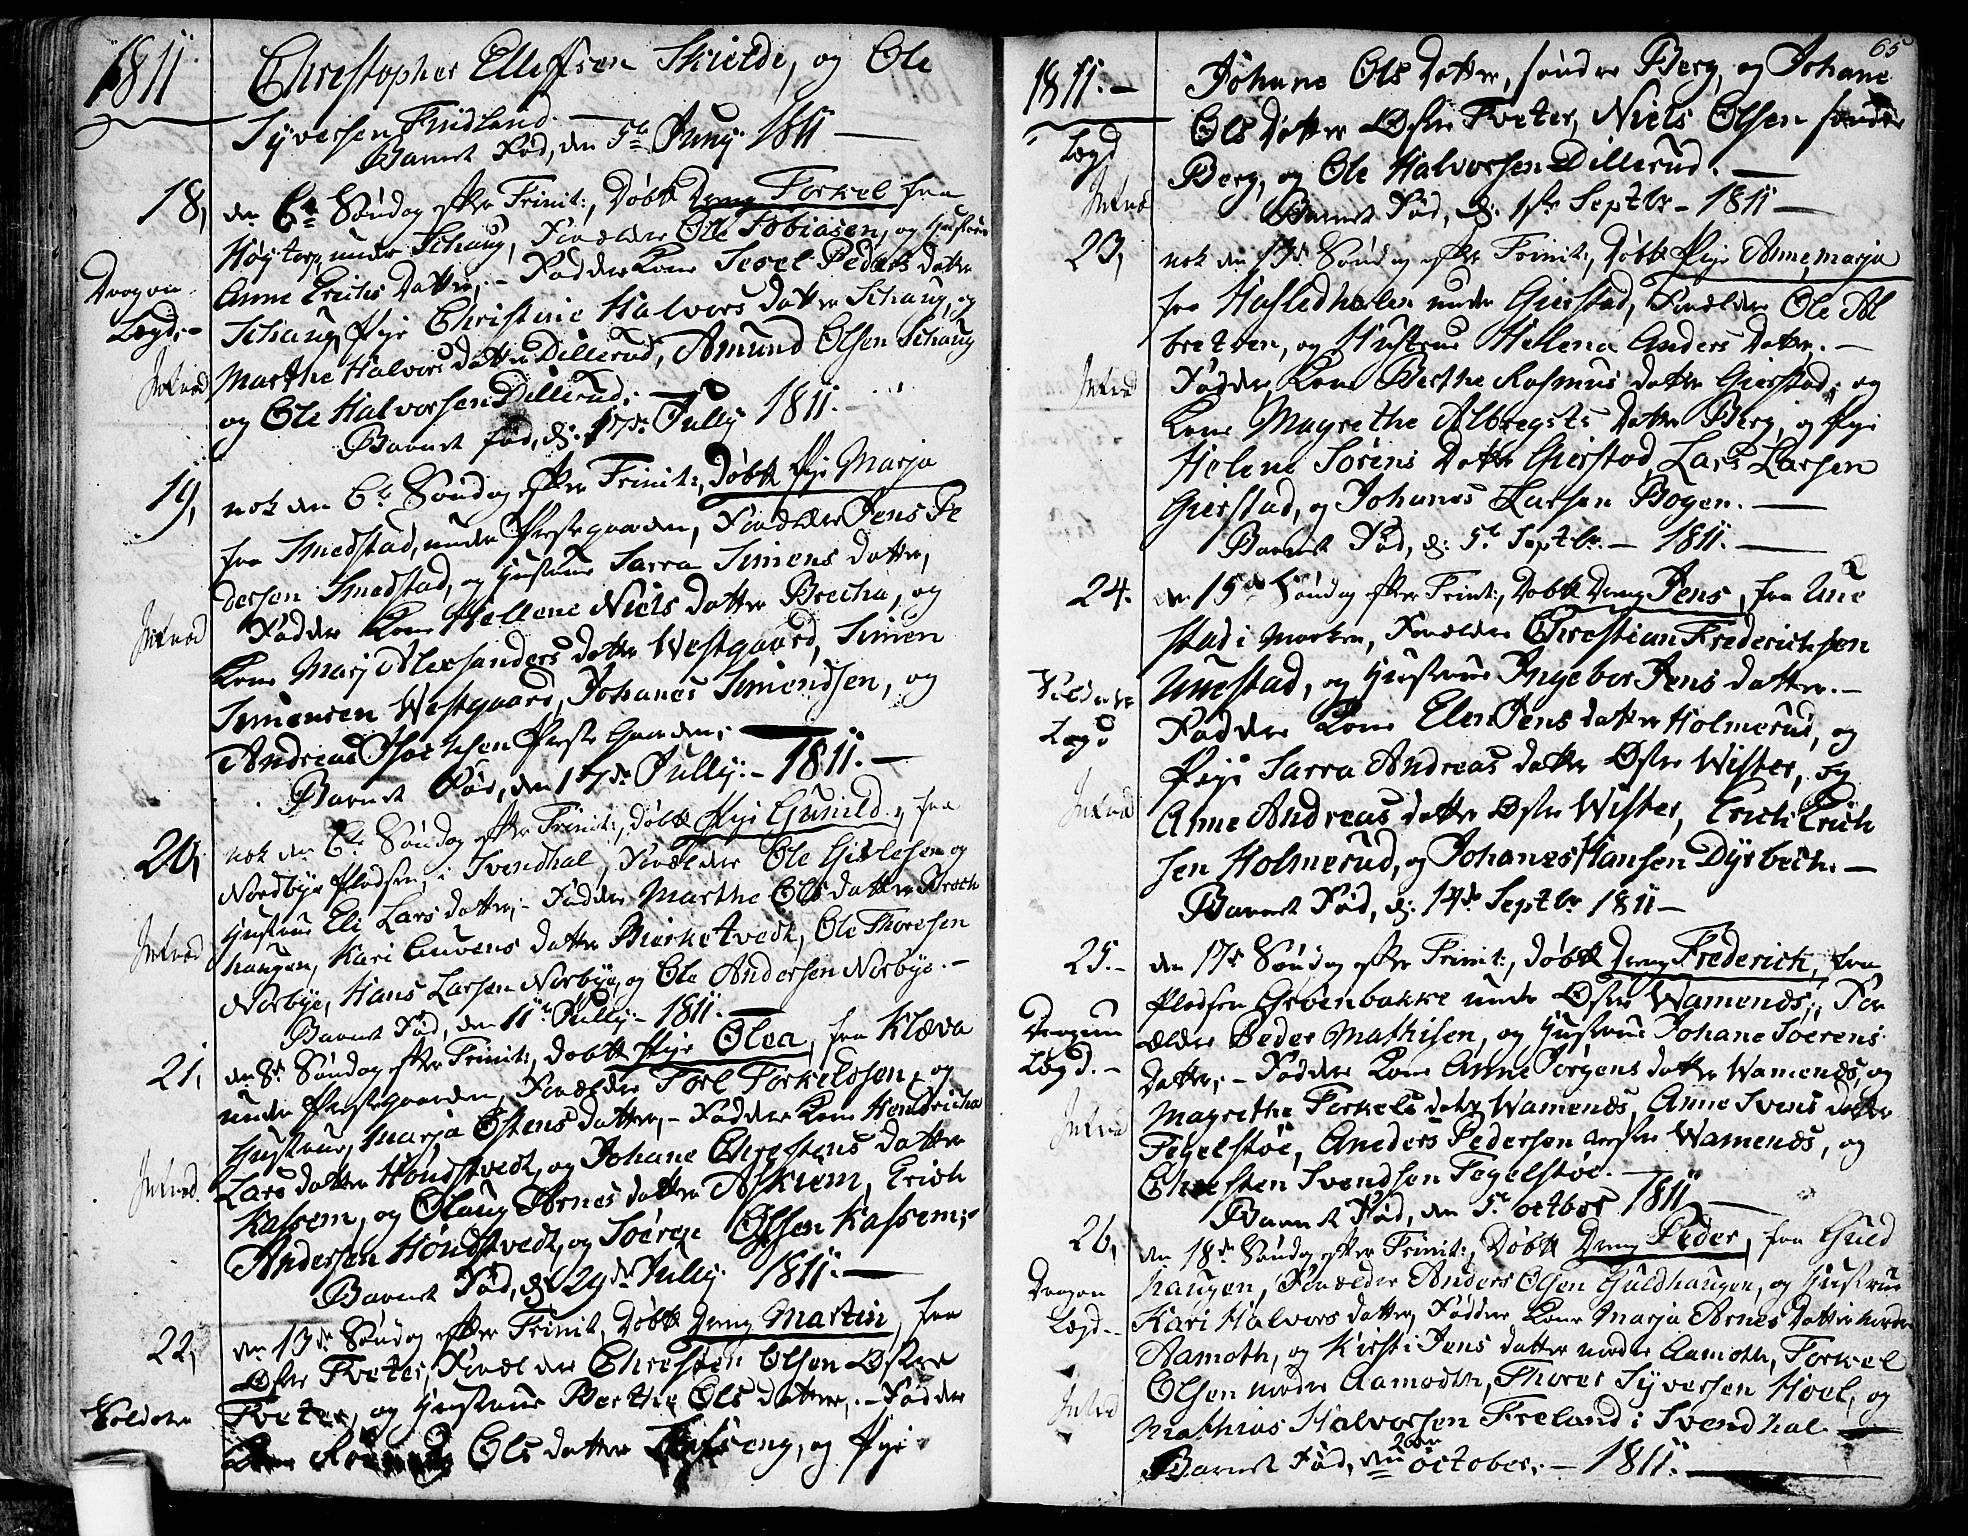 1811.
Christopher Ellefsen Skielde, og Ole
Syversen Findland. —
Barnet Fød, den 5te Juny 1811 —
18, den 6te Søndag efter Trinit:, Døbt Dreng Torkel fra
Høytorp under Schaug, Forældre Ole Tobiasen, og Hustrue
Anne Erichs Datter, – Fadder Kone Sevel Peders datter
Dragon Lægd. –
Schaug, Pige Christine Halvors datter Schaug, og
Marthe Halvors datter Dillerud, Amund Olsen Schaug
Intrød
og Ole Halvorsen Dillerud. —
Barnet fød, d: 17de Jully 1811.
19, nok den 6te Søndag efter Trinit:, Døbt Pige Marja
fra Smedstad, under Præstegaarden, Forældre Jens Pe
dersen Smedstad, og Hustrue Sarra Simens datter,
Fadder Kone Hellene Niels datter Brecha, og
Intrød
Kone Marj Alexsanders datter Westgaard, Simen
Simensen Westgaard, Johanes Simendsen, og
Andreas Præste Gaarden; —
Barnet Fød, den 17de Jully. – 1811. —
20, nok den 6te Søndag efter Trinit:, døbt Pige Gunild, fra
Nordbye Pladsen, i Svendhal, Forældre Ole Gislesen og
Hustrue Eli Lars datter, – Fadder Marthe Ols datter Broch
Intrød
haugen, Kari Auvens datter Bierketvedt, Ole Thoresen
Norbye, Hans Larsen Norbye, og Ole Andersen Norbye. –
Barnet Fød, den 11te Jully – 1811. —
21, den 8de Søndag efter Trinit:, døbt Pige Olea, fra Klæva
under Præstegaarden, Forældre Torl Torkelssen, og
Hustrue, Marja Østens datter, – Fadder Kone Hendricha
Lars datter Høndstvedt, og Johane Christens datter
Intrød
Kassem, og Olaug Arnes datter Askiem, Erich
Andersen Høndstvedt, og Soerge Olsen Kassem; –
Barnet Fød, d: 29de Jully 1811. —
22, den 13de Søndag efter Trinit, Døbt Dreng Martin, fra
Østre Tveter, Forældre Christen Olsen Østre
Soldaten
Tveter, og Hustrue Berthe Ols datter, – Fadder
Ols datter og Pige
65
1811. –
Johane Ols Datter, søndre Berg, og Johane
Ols Datter Østre Tveter, Niels Olsen søndre
Lægd
Berg, og Ole Halvorsen Dillerud. —
Intrød
Barnet Fød, d: 1ste Septbr – 1811 —
23, nok den 13de Søndag efter Trinit:, Døbt Pige Annemarja
fra Hasledhalen under Gierstad, Forældre Ole Al
bretsen, og Hustrue Helena Anders Datter. —
Intrød
Fadder Kone Berthe Rasmus datter Gierstad, og
Kone Magrethe Albregsts Datter Berg, og Pige
Helene Sørens Datter Gierstad, Lars Larsen
Gierstad, og Johanes Larsen Bogen. —
Barnet Fød, d: 5te Septbr. – 1811. —
24. den 15de Søndag efter Trinit:, Døbt Dreng Jens, fra Une
stad i Marken, Forældre Christian Frederichsen
Lægd
Unestad, og Hustrue Ingebor Jens datter. –
Fadder Kone Elen Jens datter Holmerud, og
Pige Sarra Andreas datter Østre Wister, og
Intrød
Anne Andreas datter Østre Wister, Erich Erich
sen Holmerud, og Johanes Hansen Dyrbech. —
Barnet Fød, d: 14de Septbr 1811 —
25. – den 17de Søndag efter Trinit:, døbt Dreng Frederich, fra
Pladsen Grøenbakke under Østre Wamenæs, For
Dragon
ældre Peder Mathisen, og Hustrue Johane Søerens
Lægd. –
datter, – Fadder Kone Anne Jørgens datter Wamenæs, og
Magrethe Torkels datter Wamenæs, Anne Svens datter
Intrød
Fegelstøe, Anders Pedersen østre Wamenæs, og
Christen Svendsen Fegelstøe. —
Barnet Fød, den 5te octbor 1811 —
26, den 18de Søndag efter Trinit:, Døbt Dreng Peder, fra Guld
haugen, Forældre Anders Olsen Guldhaugen, og Hustrue
Dragon
Kari Halvors datter, Fadder Kone Marja Arnes Datter nordre
Lægd. –
Aamoth, og Kirsti Jens datter nordre Aamoth, Torkel
Olsen nordre Aamodth, Thorer Syversen Hoel, og
Intrød
Mathias Halvorsen Freland i Svendhal —
Barnet Fød, den 20de october. – 1811. —